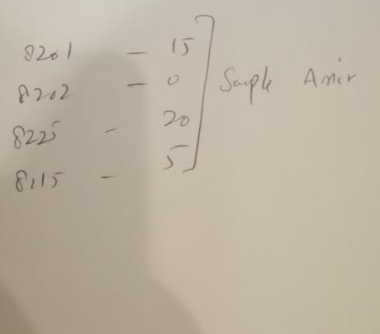 8201 - 15
8202 - 0
8225 - 20
8215 - 5
Sample Amir